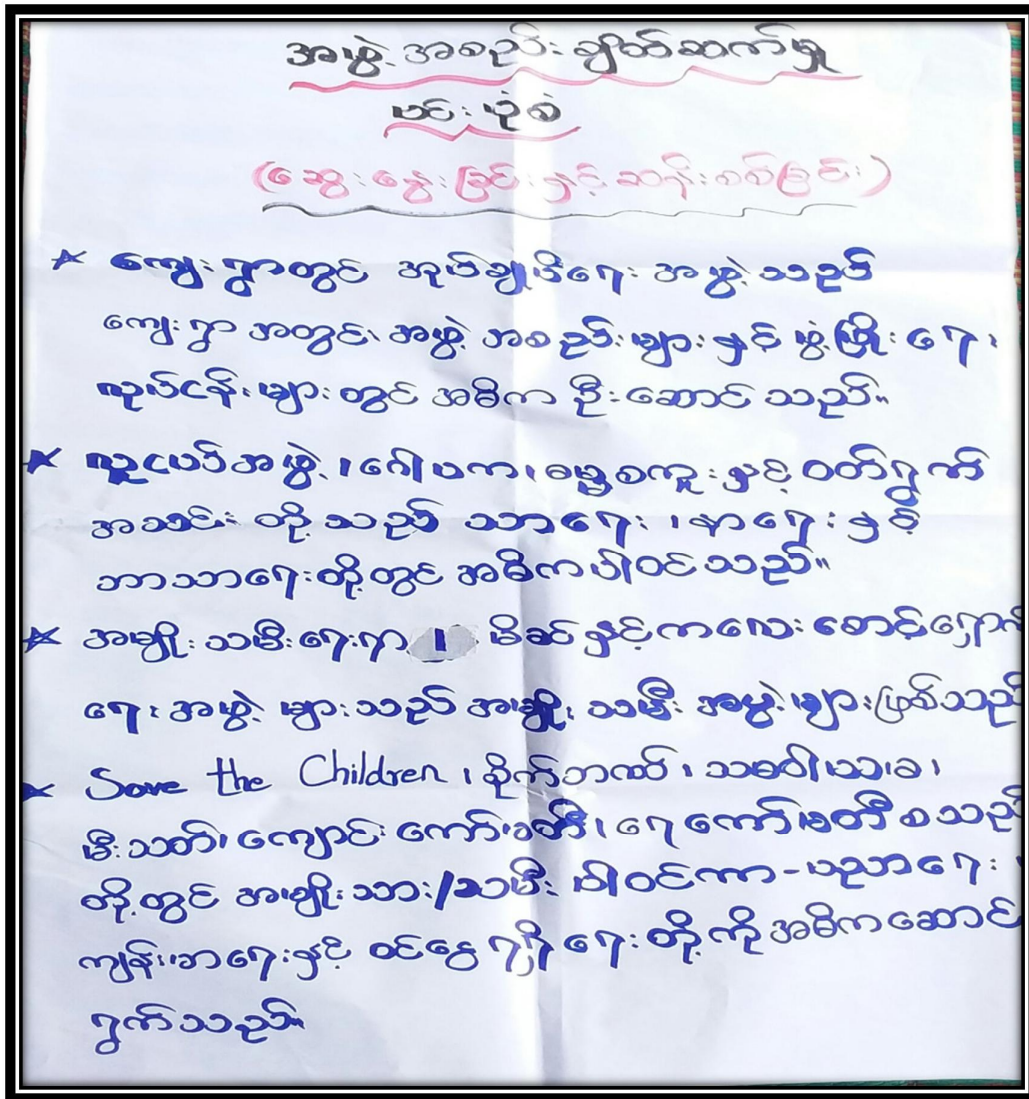 အဖွဲ့အစည်းချိတ်ဆက်မှု
ပင်းပုံစံ
(ဆွေးနွေးခြင်းနှင့်ဆန်းစစ်ခြင်း)
* ကျေးရွာတွင် အုပ်ချုပ်ရေးအဖွဲ့သည်
ကျေးရွာအတွင်း အဖွဲ့အစည်းများနှင့် ဖွံ့ဖြိုးရေး
လုပ်ငန်းများတွင် အဓိကဦးဆောင်သည်။
* လူငယ်အဖွဲ့၊ ဂေါပက၊ ဓမ္မစကူးနှင့် ဝတ်ရွတ်
အသင်းတို့သည် သာရေး၊ နာရေးနှင့်
ဘာသာရေးတို့တွင် အဓိကပါဝင်သည်။
* အမျိုးသမီးရေးရာ ၊ မိခင်နှင့်ကလေးစောင့်ရှောက်
ရေးအဖွဲ့များသည် အမျိုးသမီးအဖွဲ့များဖြစ်သည်
* Save the Children ၊ စိုက်ဘဏ်၊ သမဝါယမ၊
မီးသတ်၊ ကျောင်းကော်မတီ၊ ရေကော်မတီ စသည်
တို့တွင် အမျိုးသား/သမီး ပါဝင်ကာ-ပညာရေး
ကျန်းမာရေးနှင့် ဝင်ငွေရရှိရေးတို့ကို အဓိကဆောင်
ရွက်သည်။